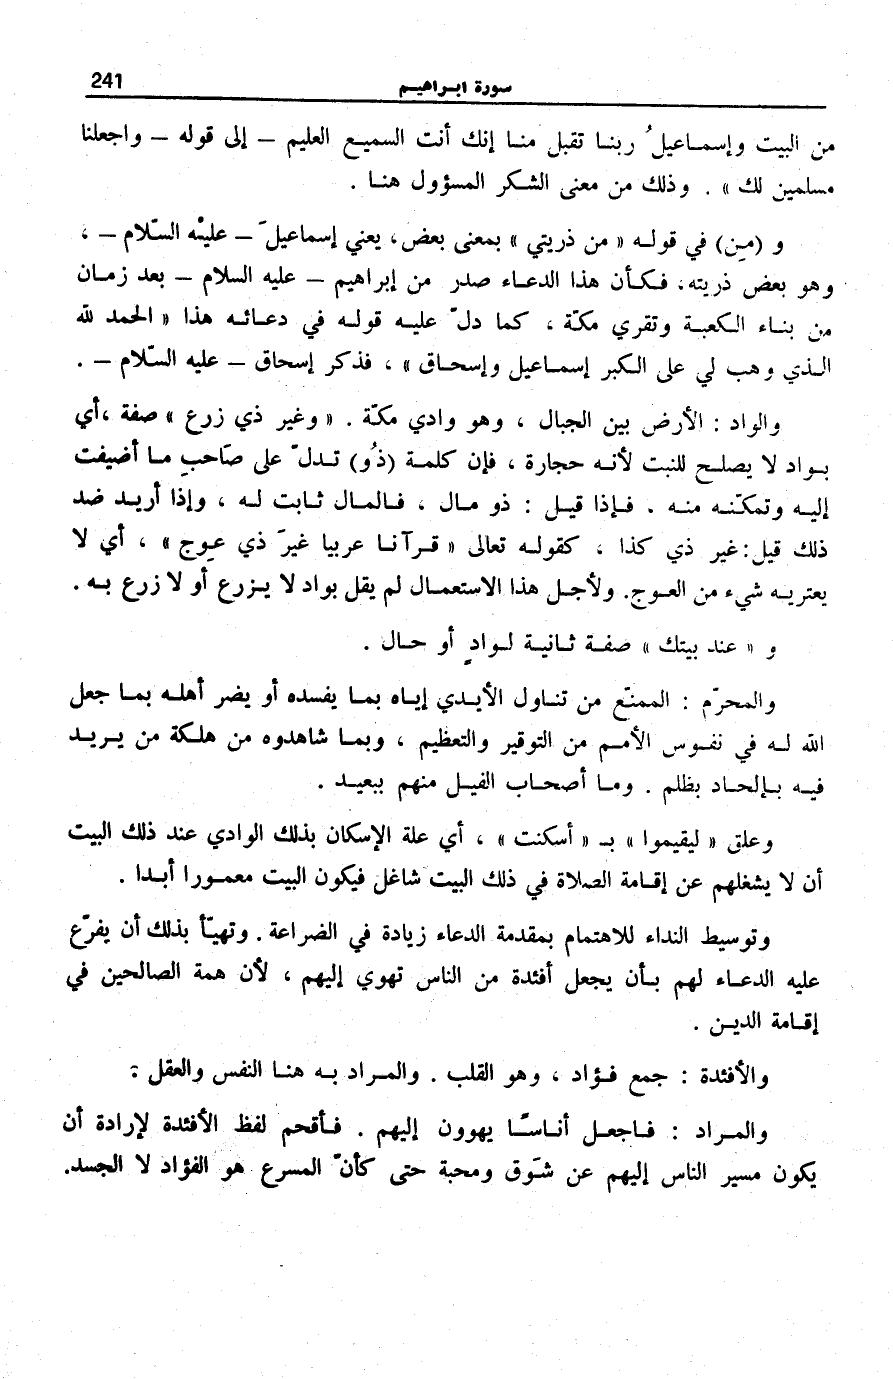 سورة ابراهيم
241
من البيت وإسماعيلُ ربنا تقبل منا إنك أنت السميع العليم – إلى قوله – واجعلنا
مسلمين لك » . وذلك من معنى الشكر المسؤول هنا .
و (مِن) في قوله « من ذريتي » بمعنى بعض، يعني إسماعيلَ – عليْه السّلام – ،
وهو بعض ذريته، فكأن هذا الدعاء صدر من إبراهيم – عليه السلام – بعد زمان
من بناء الكعبة وتقري مكّة ، كما دلّ عليه قوله في دعائه هذا « الحمد لله
الذي وهب لي على الكبر إسماعيل وإسحاق » ، فذكر إسحاق – عليه السّلام – .
والواد : الأرض بين الجبال ، وهو وادي مكّة . « وغير ذي زرع » صفة ،أي
بواد لا يصلح للنبت لأنه حجارة ، فإن كلمة (ذُو) تدلّ على صَاحب ما أضيفت
إليه وتمكّنه منه . فإذا قيل : ذو مال ، فالمال ثابت له ، وإذا أريد ضد
ذلك قيل: غير ذي كذا ، كقوله تعالى « قرآنا عربيا غيرَ ذي عِوج » ، أي لا
يعتريه شيء من العوج. ولأجل هذا الاستعمال لم يقل بواد لا يزرع أو لا زرع به .
و « عند بيتك » صفة ثانية لوادٍ أو حال .
والمحرّم : الممنّع من تناول الأيدي إياه بما يفسده أو يضر أهله بما جعل
الله له في نفوس الأمم من التوقير والتعظيم ، وبما شاهدوه من هلكة من يريد
فيه بإلحاد بظلم . وما أصحاب الفيل منهم ببعيد .
وعلق « ليقيموا » بـ « أسكنت » ، أي علة الإسكان بذلك الوادي عند ذلك البيت
أن لا يشغلهم عن إقامة الصلاة في ذلك البيت شاغل فيكون البيت معمورا أبدا .
وتوسيط النداء للاهتمام بمقدمة الدعاء زيادة في الضراعة . وتهيّأ بذلك أن يفرّع
عليه الدعاء لهم بأن يجعل أفئدة من الناس تهوي إليهم ، لأن همة الصالحين في
إقامة الدين .
والأفئدة : جمع فؤاد ، وهو القلب . والمراد به هنا النفس والعقل :
والمراد : فاجعل أناسًا يهوون إليهم . فأقحم لفظ الأفئدة لإرادة أن
يكون مسير الناس إليهم عن شَوق ومحبة حتى كأنّ المسرع هو الفؤاد لا الجسد.